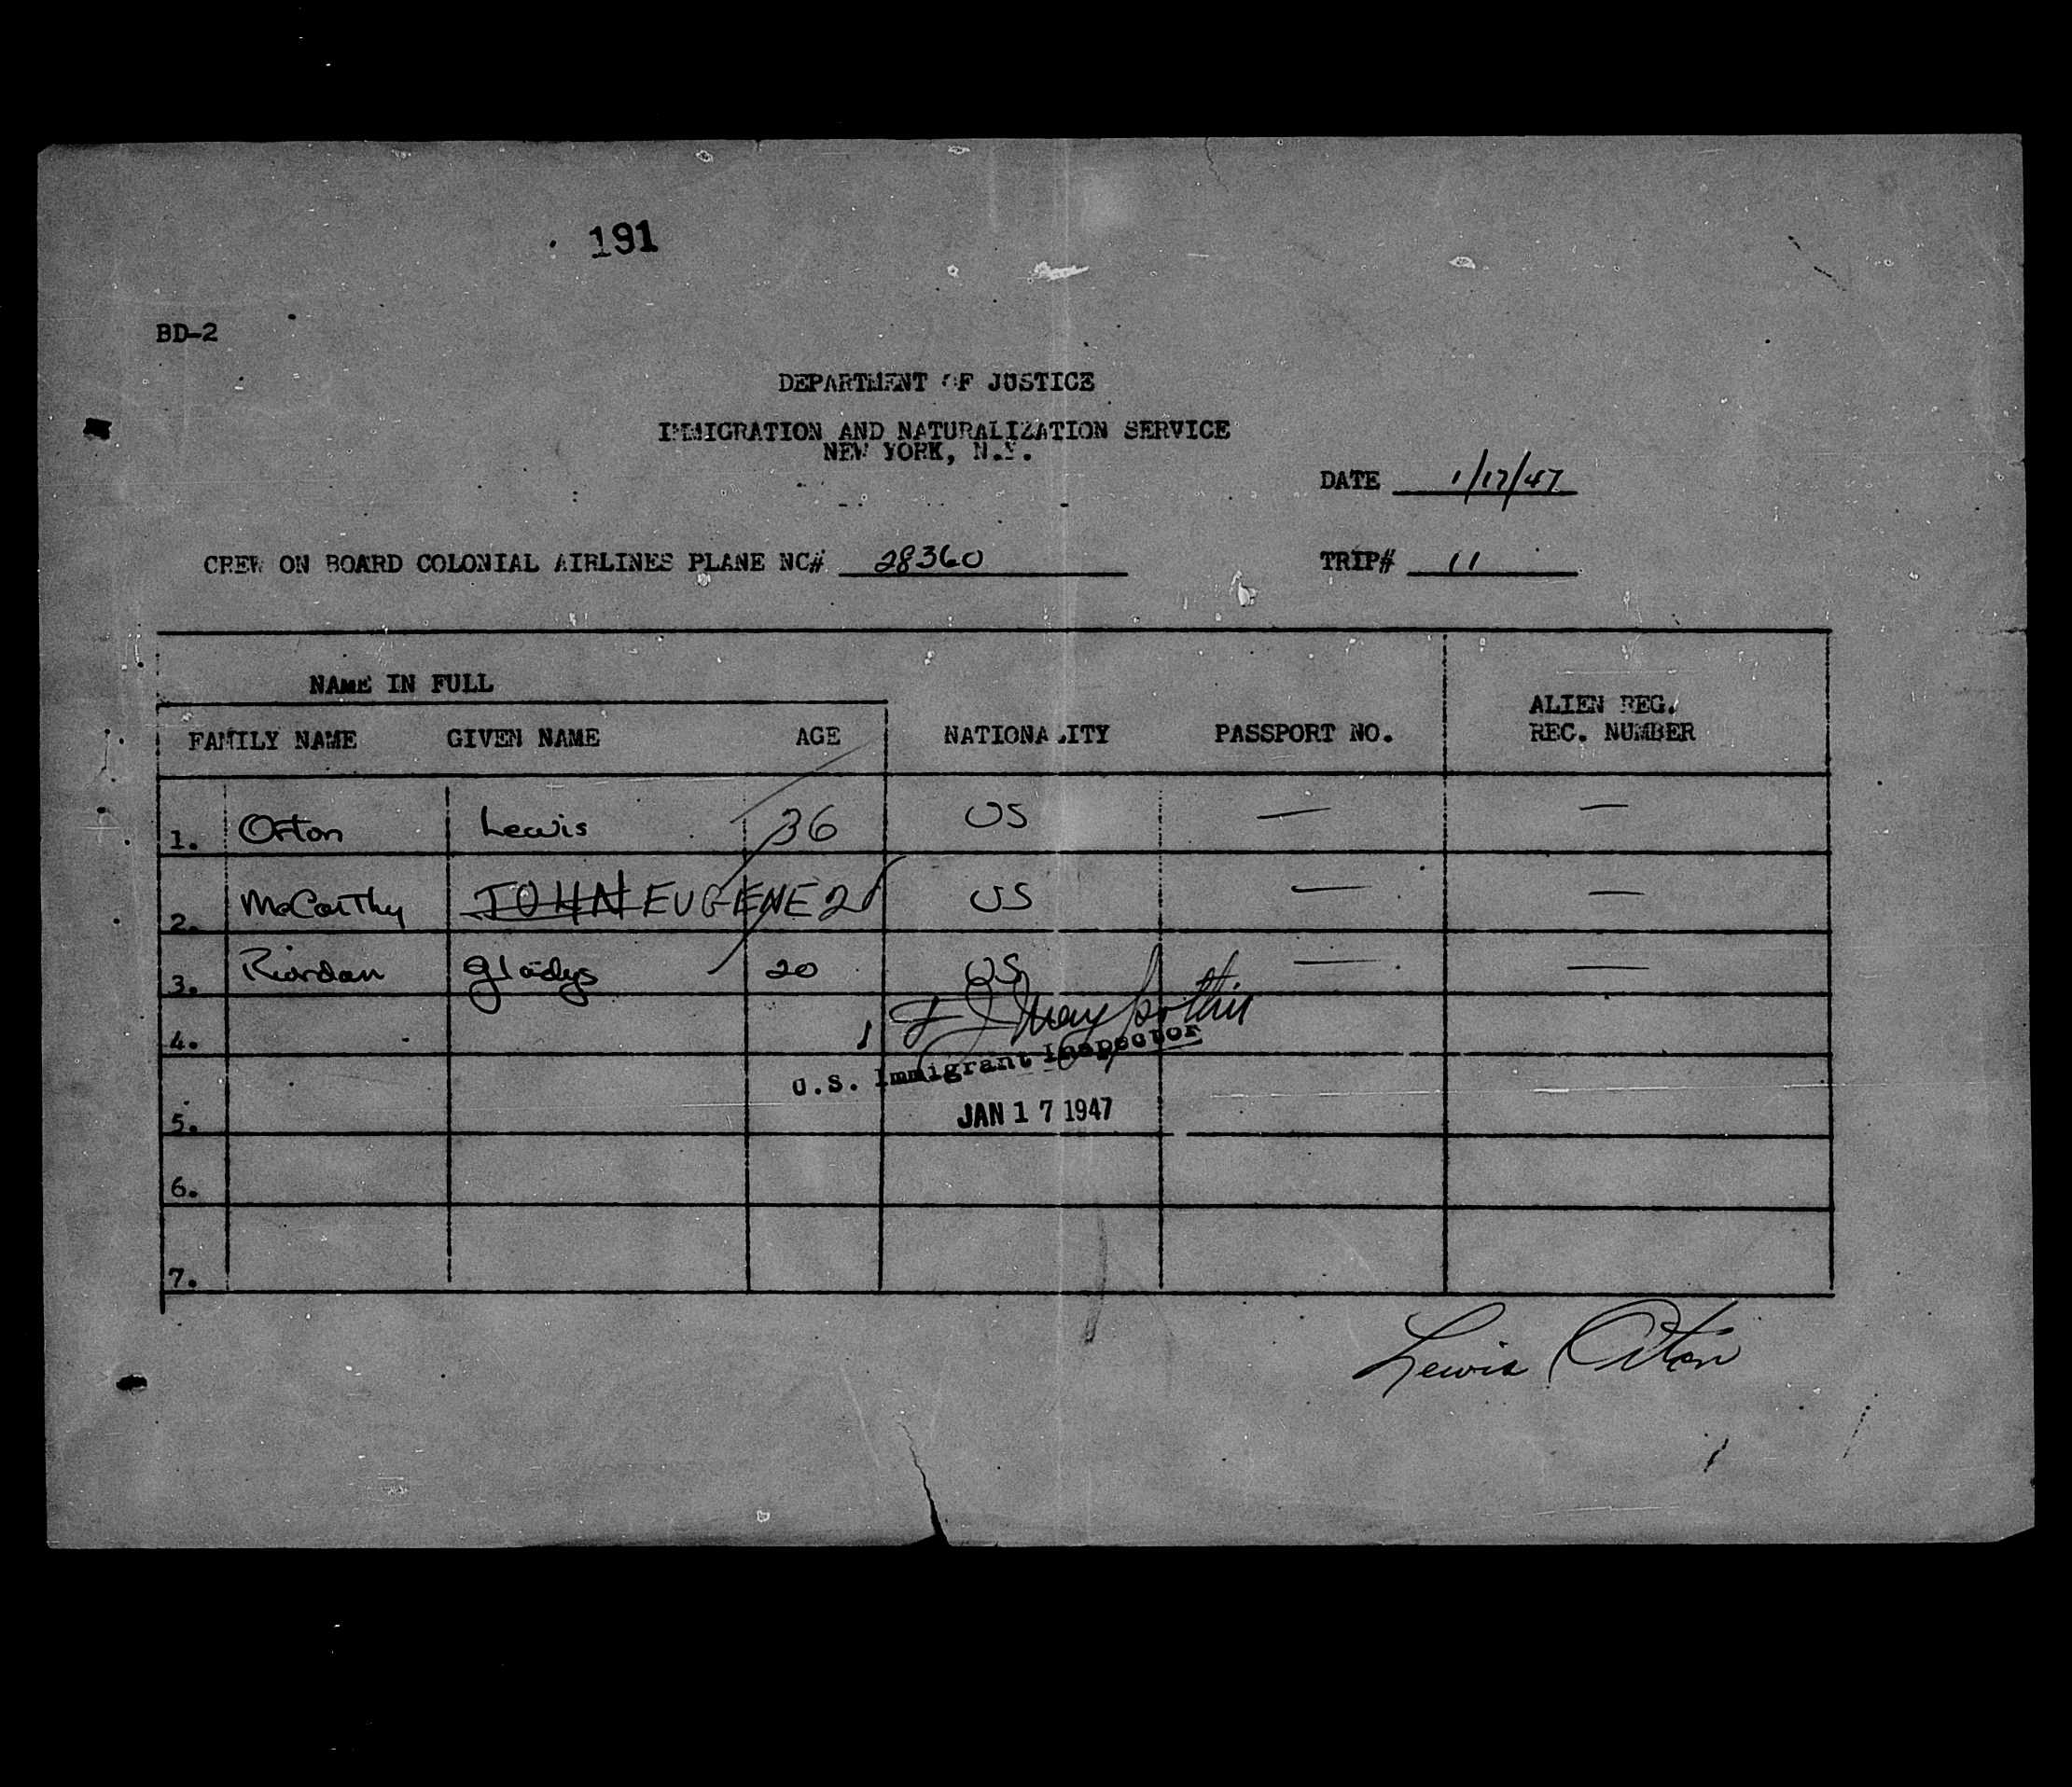 191
BD-2
DEPARTMENT OF JUSTICE
IMMIGRATION AND NATURALIZATION SERVICE
NEW YORK, N.Y.
DATE 1/17/47
CREW ON BOARD COLONIAL AIRLINES PLANE NC# 28360 TRIP# 11
NAME IN FULL
FAMILY NAME GIVEN NAME AGE NATIONALITY PASSPORT NO. ALIEN REG. REC. NUMBER
1. Orton Lewis 36 US — —
2. McCarthy JOHN EUGENE US — —
3. Riordan Gladys 20 US — —
4.
U.S. Immigrant Inspector
JAN 17 1947
5.
6.
7.
Lewis Orton